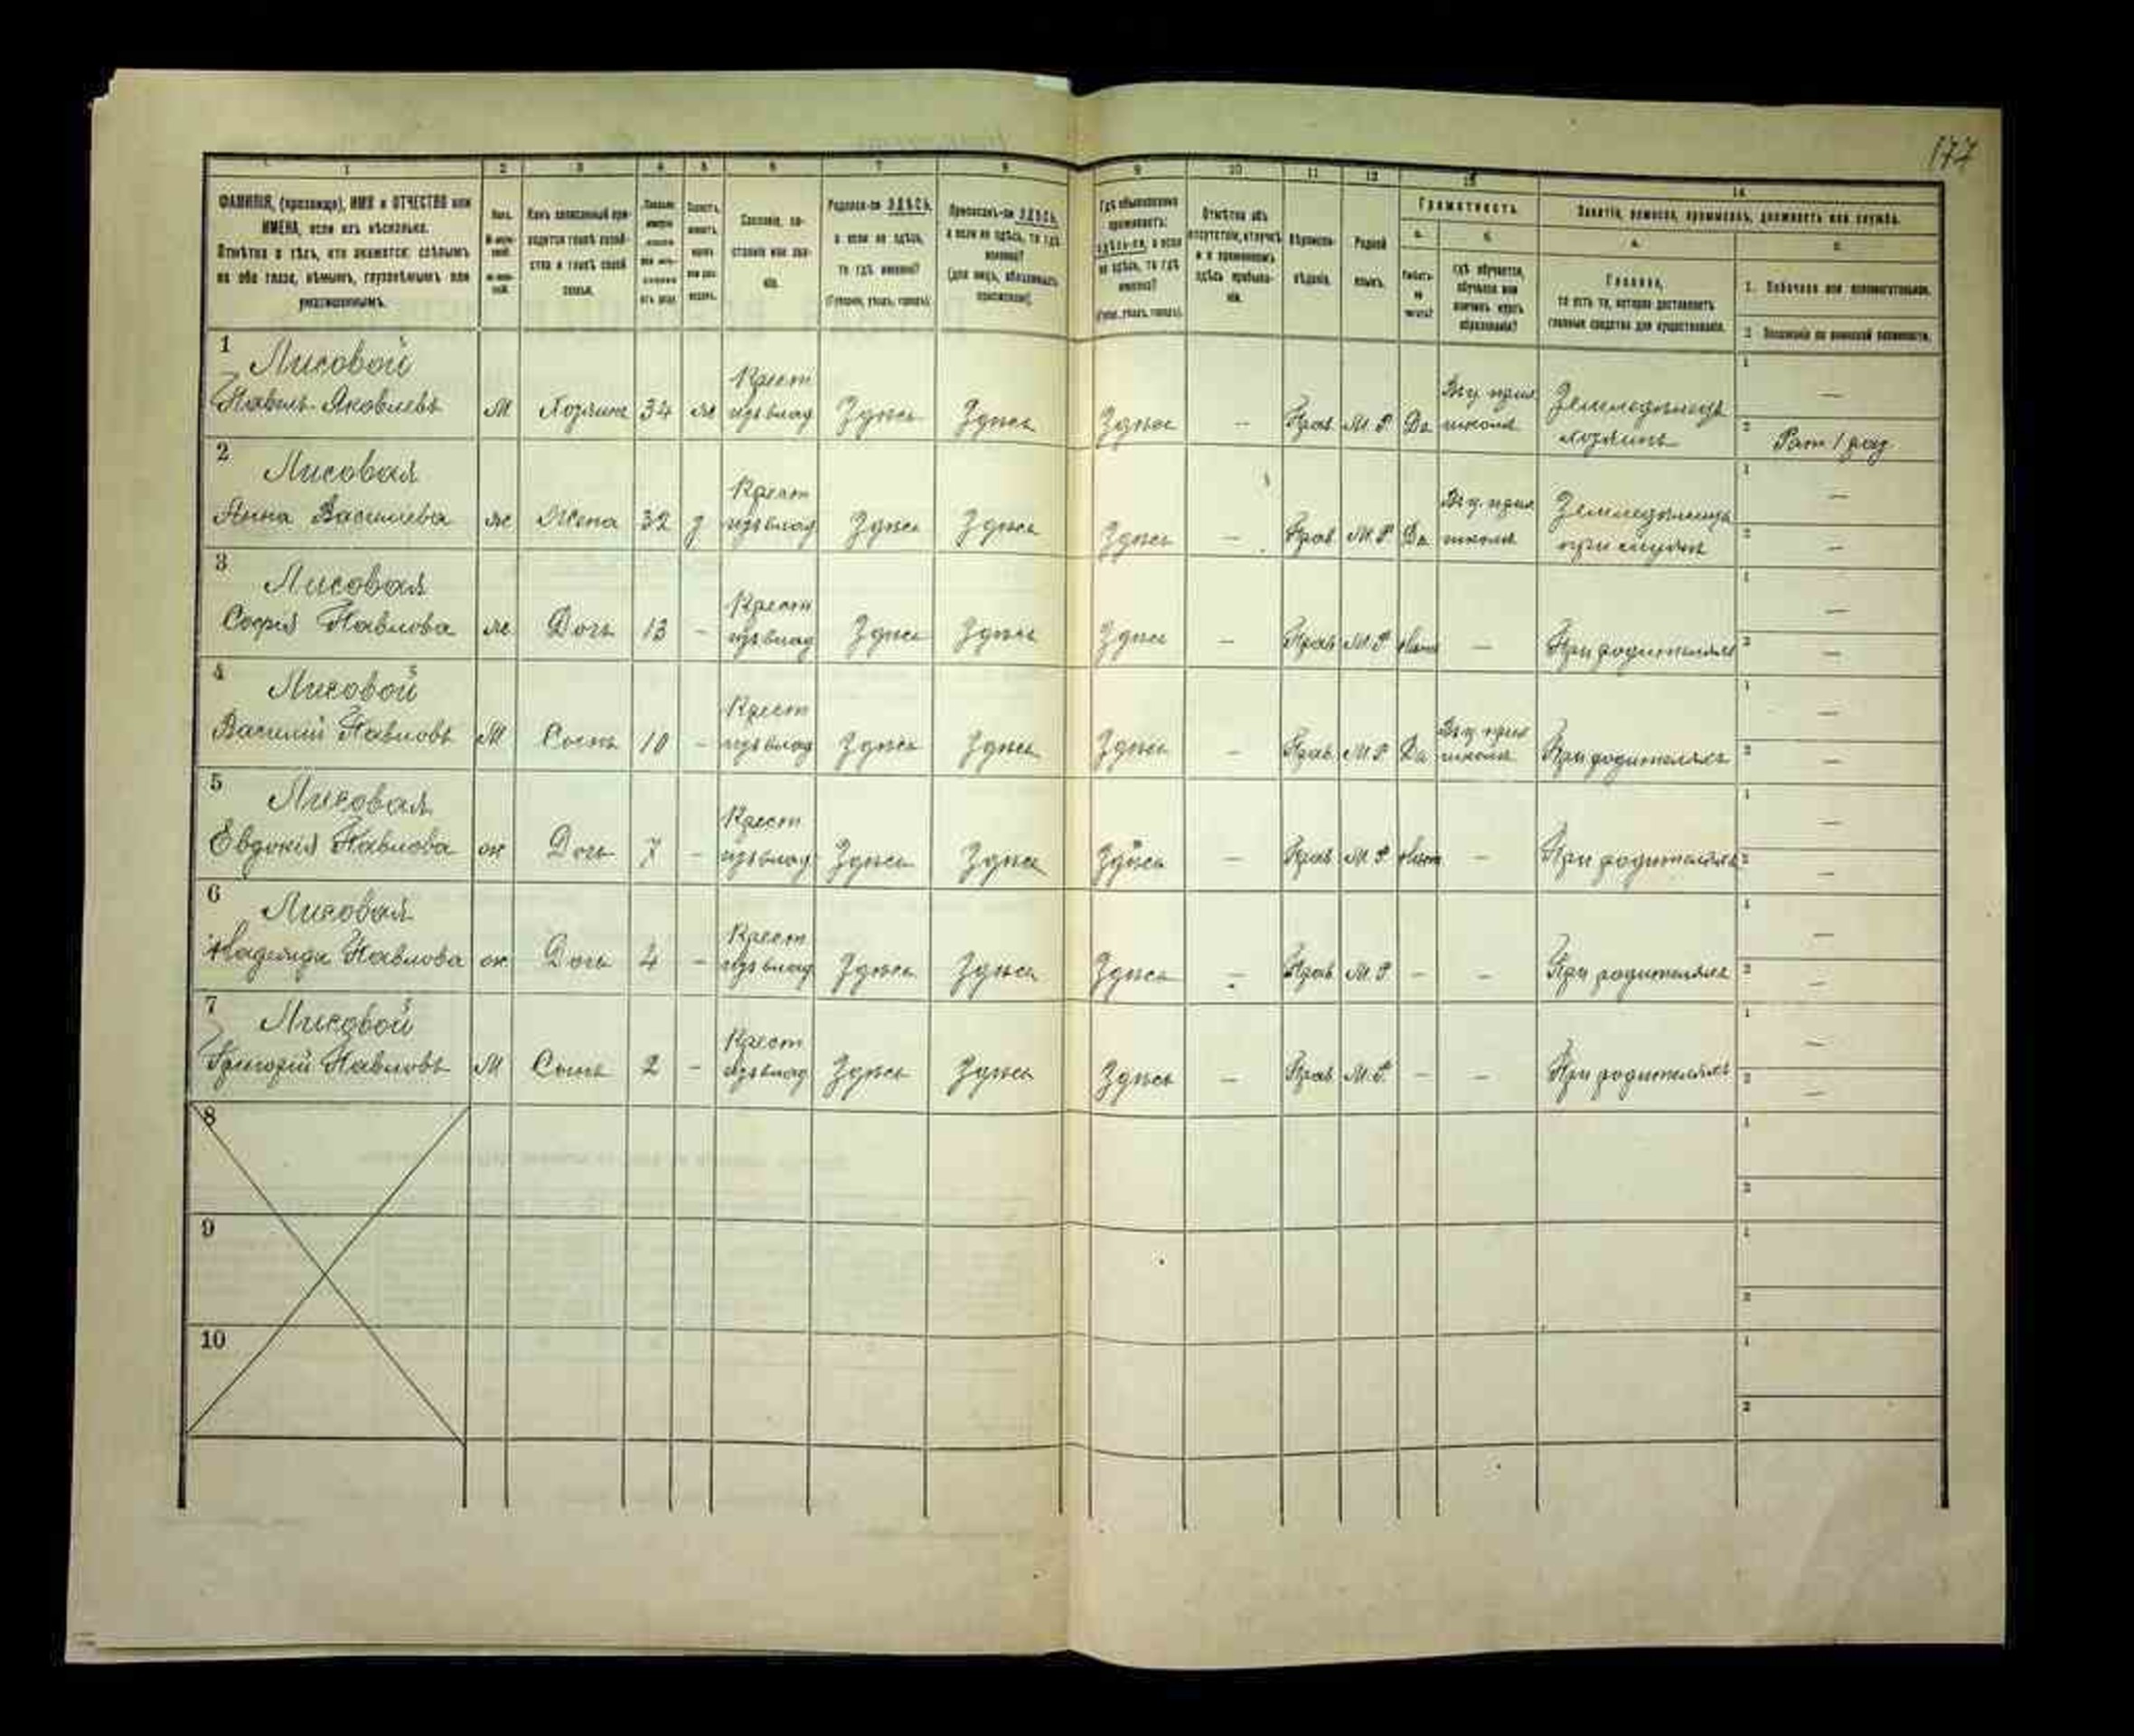 177
1
2
3
4
5
6
7
8
9
10
11
12
13
14
ФАМИЛІЯ, (прозвище), ИМЯ и ОТЧЕСТВО или
ИМЕНА, если ихъ нѣсколько.
Отмѣтка о тѣхъ, кто окажется: слѣпымъ
на оба глаза, нѣмымъ, глухонѣмымъ или
умалишеннымъ.
Полъ.
Какъ записанный при-
ходится главѣ хозяй-
ства и главѣ своей
семьи.
Сословіе, со-
стояніе или зва-
ніе.
Родился-ли ЗДѢСЬ,
а если не здѣсь,
то гдѣ именно?
(Губернія, уѣздъ, городъ).
Приписанъ-ли ЗДѢСЬ,
а если не здѣсь, то гдѣ
именно?
(для лицъ, обязанныхъ
припискою).
Гдѣ обыкновенно
проживаетъ:
здѣсь-ли, а если
не здѣсь, то гдѣ
именно?
(Губ., уѣздъ, городъ).
Отмѣтка объ
отсутствіи, отлучкѣ
и о временномъ
здѣсь пребыва-
ніи.
Вѣроиспо-
вѣданіе.
Родной
языкъ.
Грамотность.
а.
б.
Умѣетъ-
ли
читать?
Гдѣ обучается,
обучался или
кончилъ курсъ
образованія?
Занятіе, ремесло, промыселъ, должность или служба.
а.
б.
Главное,
то есть то, которое доставляетъ
главныя средства для существованія.
1. Побочное или вспомогательное.
2. Положеніе по воинской повинности.
1
Лисовой
Крест
Въ ц. прих
Земледѣлецъ
1
—
Павелъ Яковлевъ
м
Хозяинъ
34
ж
изъ влад
Здѣсь
Здѣсь
Здѣсь
—
Прав
М.Р
Да
школѣ
хозяинъ
2
Рат 1 раз
2
Лисовая
Крест
Въ ц. прих
Земледѣлецъ
1
—
Анна Васильева
ж
Жена
32
з
изъ влад
Здѣсь
Здѣсь
Здѣсь
—
Прав
М.Р
Да
школѣ
при мужѣ
2
—
3
Лисовая
Крест
1
—
Софія Павлова
ж
Дочь
13
-
изъ влад
Здѣсь
Здѣсь
Здѣсь
—
Прав
М.Р
—
При родителяхъ
2
—
4
Лисовой
Крест
Въ ц. прих
1
—
Василій Павловъ
М
Сынъ
10
-
изъ влад
Здѣсь
Здѣсь
Здѣсь
—
Прав
М.Р
Да
школѣ
При родителяхъ
2
—
5
Лисовая
Крест
1
—
Евдокія Павлова
ж
Дочь
7
-
изъ влад
Здѣсь
Здѣсь
Здѣсь
—
Прав
М.Р
-
При родителяхъ
2
—
6
Лисовая
Крест
1
—
Надежда Павлова
ж
Дочь
4
-
изъ влад
Здѣсь
Здѣсь
Здѣсь
—
Прав
М.Р
-
-
При родителяхъ
2
—
7
Лисовой
Крест
1
—
Григорій Павловъ
М
Сынъ
2
-
изъ влад
Здѣсь
Здѣсь
Здѣсь
—
Прав
М.Р.
-
-
При родителяхъ
2
—
8
1
2
9
1
2
10
1
2